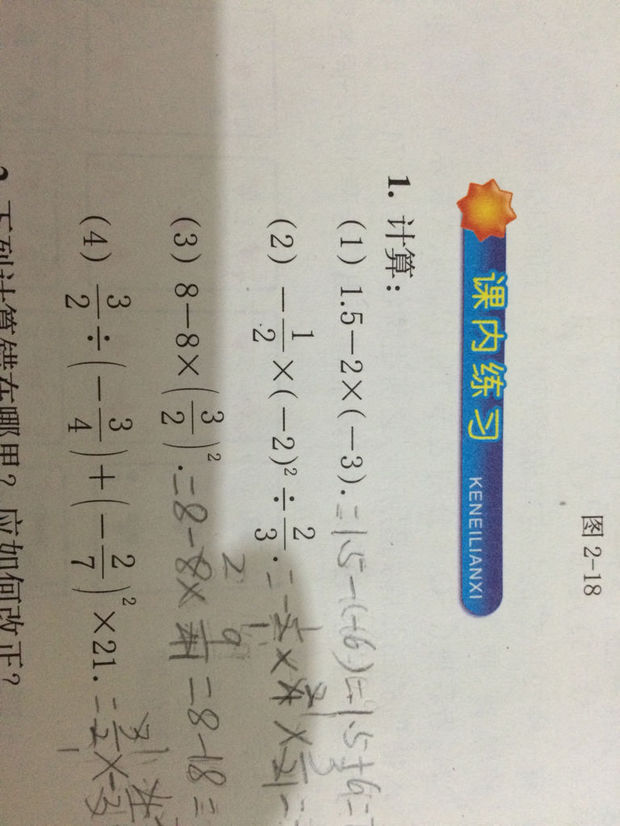 图 2-18
课内练习 KENEILIANXI
1. 计算：
(1) 1.5-2×(-3). =1.5-(-6)=1.5+6=
(2) -1/2×(-2)²÷2/3. =-1/2×4×3/2=
(3) 8-8×(3/2)². =8-8×9/4=8-18=
(4) 3/2÷(-3/4)+(-2/7)²×21. =3/2×
2. 下列计算错在哪里？应如何改正？